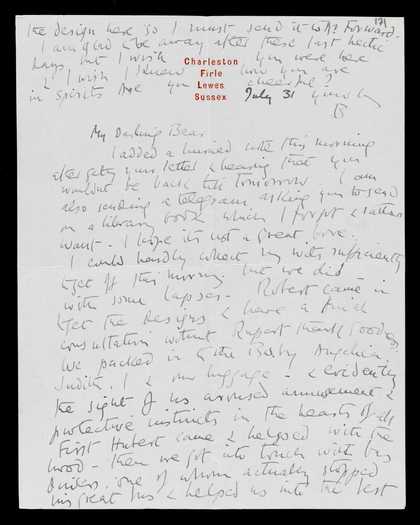 the design here so I must send it to be Forward.
171
I am glad to be away after these last hectic
days but I wish you were here
& I wish I knew how you are
in spirits Are you cheerful?
Charleston
Firle
Lewes
Sussex
July 31
B
My Darling Bear
I added a hurried note this morning
after getting your letter & hearing that you
wouldnt be back till tomorrow. I am
also sending a telegram, asking you to send
on a library book which I forgot & rather
want. I hope its not a great bore.
I could hardly collect my wits sufficiently
to get off this morning but we did
with some lapses. Robert came in
to get the designs & have a final
consultation without Rupert thank goodness
We packed in the Baby Angelica
Judith, I & our luggage & evidently
the sight of us aroused amusement &
protective instincts in the hearts of all
First Hubert came & helped with the
hood. then we got into touch with bus
drivers, one of whom actually stopped
his great bus & helped us into the best